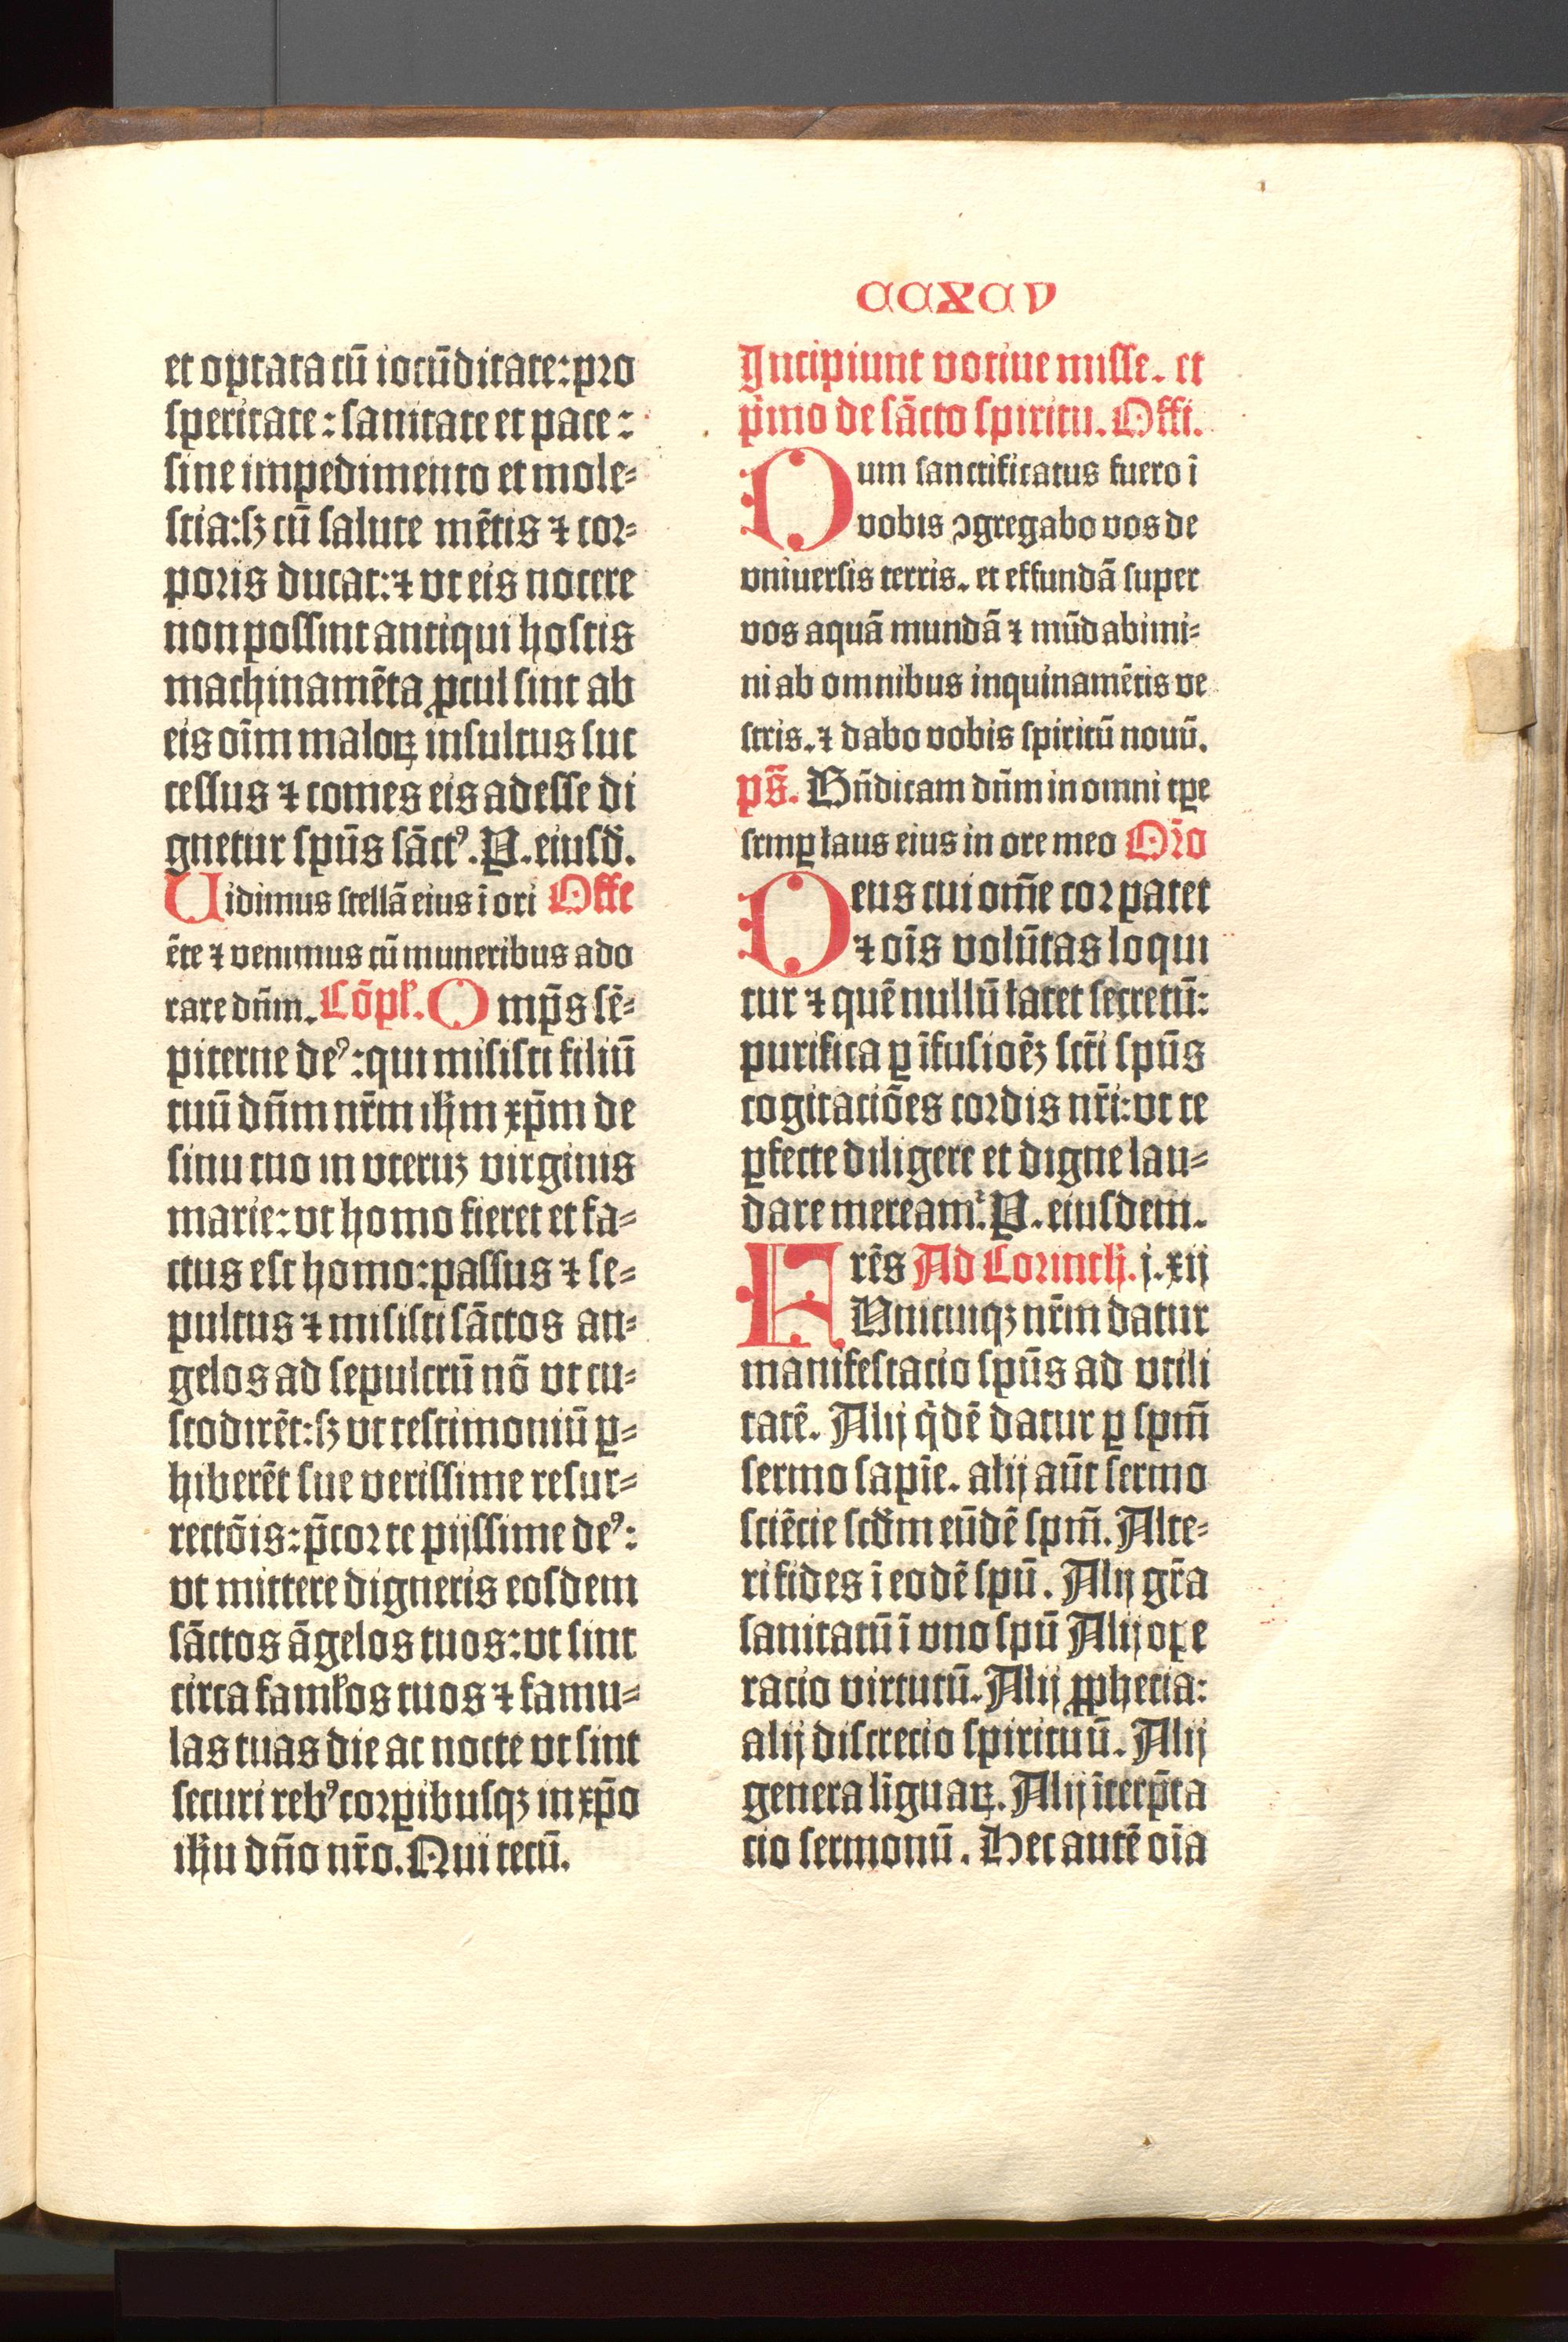 CCXCV
et optata cū iocūditate: pro
speritate: sanitate et pace:
sine impedimento et mole⸗
stia: sꝫ cū salute mētis ⁊ cor⸗
poris ducat: ⁊ vt eis nocere
non possint antiqui hostis
machinamēta ꝓcul sint ab
eis oīm maloꝝ insultus suc
cessus ⁊ comes eis adesse di
gnetur spūs sāctꝰ. P. eiusđ.
Uidimus stellā eius ī ori Offe
ēte ⁊ venimus cū muneribus ado
rare dn̄m. Cōpł. Omp̄s sē⸗
piterne deꝰ: qui misisti filiū
tuū dn̄m nr̄m iħm xp̄m de
sinu tuo in vteruꝫ virginis
marie: vt homo fieret et fa⸗
ctus est homo: passus ⁊ se⸗
pultus ⁊ misisti sāctos an⸗
gelos ad sepulcrū nō vt cu⸗
stodirēt: sꝫ vt testimoniū ꝑ⸗
hiberēt sue verissime resur⸗
rectōis: p̄cor te pijssime deꝰ:
vt mittere digneris eosdem
sāctos āgelos tuos: vt sint
circa famłos tuos ⁊ famu⸗
las tuas die ac nocte vt sint
securi rebꝰ corꝑibusqꝫ in xp̄o
iħu dn̄o nr̄o. Qui tecū.
Incipiunt votiue misse. et
p̄mo de sācto spiritu. Offi.
Cum sanctificatus fuero ī
vobis ↄgregabo vos de
vniuersis terris. et effundā super
vos aquā mundā ⁊ mūdabimi⸗
ni ab omnibus inquinamētis ve
stris. ⁊ dabo vobis spiritū nouū.
ps̄. Bn̄dicam dn̄m in omni tꝑe
semꝑ laus eius in ore meo Oīo
Deus cui om̄e cor patet
⁊ oīs volūtas loqui
tur ⁊ quē nullū latet secretū:
purifica ꝑ īfusioēꝫ sct̄i spūs
cogitaciōes cordis nr̄i: vt te
ꝑfecte diligere et digne lau⸗
dare meream᷑. P. eiusdem.
Frēs Ad Corintħ. j. xij
Vnicuiqꝫ nr̄m datur
manifestacio spūs ad vtili
tatē. Alij q̇dē datur ꝑ spm̄
sermo sapīe. alij aūt sermo
sciēcie scđm eūdē spm̄. Alte⸗
ri fides ī eodē spū. Alij gr̄a
sanitatū ī vno spū Alij oꝑe
racio virtutū. Alij ꝓphecia:
alij discrecio spirituū. Alij
genera līguaꝝ. Alij īterp̄ta
cio sermonū. Hec autē oīa